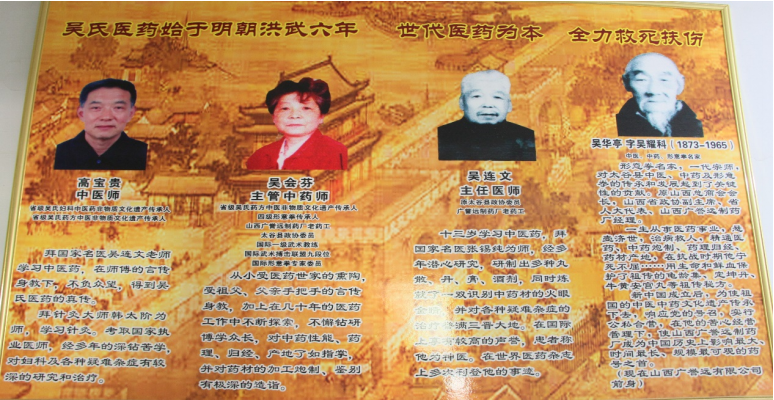 吴氏医药始于明朝洪武六年 世代医药为本 全力救死扶伤
高宝贵
中医师
省级吴氏妇科中医药非物质文化遗产传承人
省级吴氏药方中医非物质文化遗产传承人
拜国家名医吴连文老师
学习中医药，在师傅的言传
身教下，不负众望，得到吴
氏医药的真传。
拜针灸大师韩太阶为
师，学习针灸。考取国家执
业医师，经多年的深钻善学，
对妇科及各种疑难杂症有较
深的研究和治疗。
吴会芬
主管中药师
省级吴氏药方中医非物质文化遗产传承人
四级形意拳传承人
山西广誉远制药厂老药工
太谷县政协委员
国际一级武术教练
国际武术搏击联盟九段位
国际形意拳专家委员
从小受医药世家的熏陶，
受祖父、父亲手把手的言传
身教，加上在几十年的医药
工作中不断探索，不懈钻研
博学众长，对中药性能、药
理、归经、产地了如指掌，
并对药材的加工炮制、鉴别
有极深的造诣。
吴连文
主任医师
原太谷县政协委员
广誉远制药厂老药工
十三岁学习中医药，拜
国家名医张锡纯为师，经多
年潜心研究，研制出多种丸
散、丹、膏、酒剂，同时炼
就了一双识别中药材的火眼
金睛，并对各种疑难杂症的
治疗誉满三晋大地。在国际
上享有较高的声誉，患者称
他为神医。在世界医药杂志
上多次刊登他的事迹。
吴华亭 字吴耀科（1873-1965）
中医、中药、形意拳名家
形意拳名家，一代宗师，
对太谷县中医、中药及形意
拳的传承和发展起到了关键
性的贡献。原山西总商会会
长，山西省政协副主席，省
人大代表、山西广誉远制药
厂经理。
一生从事医药事业，悬
壶济世，治病救人，精通医
药、中药炮制、药理归经、
药材产地，在抗战时期他宁
死不屈……用生命和鲜血保
护了祖传的龟龄集、定坤丹、
牛黄安宫丸等祖传秘方。
新中国成立后，为使祖
国的中医中药文化遗产传承
下去，响应党的号召，实行
公私合营，在他的悉心经营
管理下，使山西广誉远制药
厂成为中国历史上影响最大、
时间最长、规模最可观的药
号之首。
（现在山西广誉远有限公司
前身）